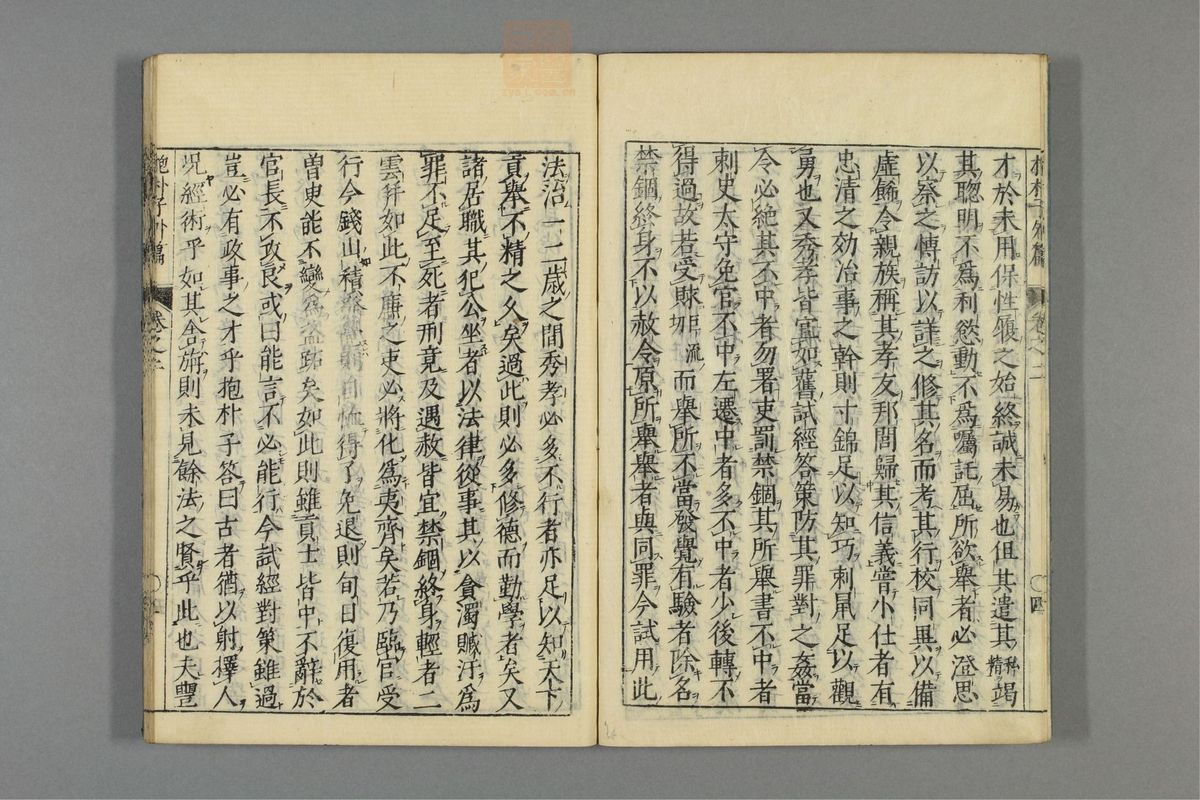 抱朴子外篇 卷之二 〇四
才於未用保性履之始終誠未易也但其遣其私竭精
其聰明不爲利慾動不爲囑託屈所欲舉者必澄思
以察之博訪以詳之修其名而考其行校同異以備
虛飾令親族稱其孝友邦閭歸其信義嘗小仕者有
忠清之効治事之幹則寸錦足以知巧刺鼠足以觀
勇也又秀孝皆宜如舊試經答策防其罪對之姦當
令必絕其不中者勿署吏罰禁錮其所舉書不中者
刺史太守免官不中左遷中者多不中者少後轉不
得過故若受賕而舉所不當發覺有驗者除名
禁錮終身不以赦令原所舉舉者與同罪今試用此
法治一二歲之間秀孝必多不行者亦足以知天下
貢舉不精之久矣過此則必多修德而勤學者矣又
諸居職其犯公坐者以法律從事其以貪濁贓汙爲
罪不足至死者刑竟及遇赦皆宜禁錮終身輕者二
十年如此不廉之吏必將化爲夷齊矣若乃臨官受
行今錢山積得了免退則旬日復用者
曽史能不變爲盜跖矣如此則雖貢士皆中不辭於
官長不攻良或曰能言不必能行今試經對策雖過
豈必有政事之才乎抱朴子答曰古者猶以射擇人
况經術乎如其舍旃則未見餘法之賢乎此也夫豐
抱朴子外篇 卷之二